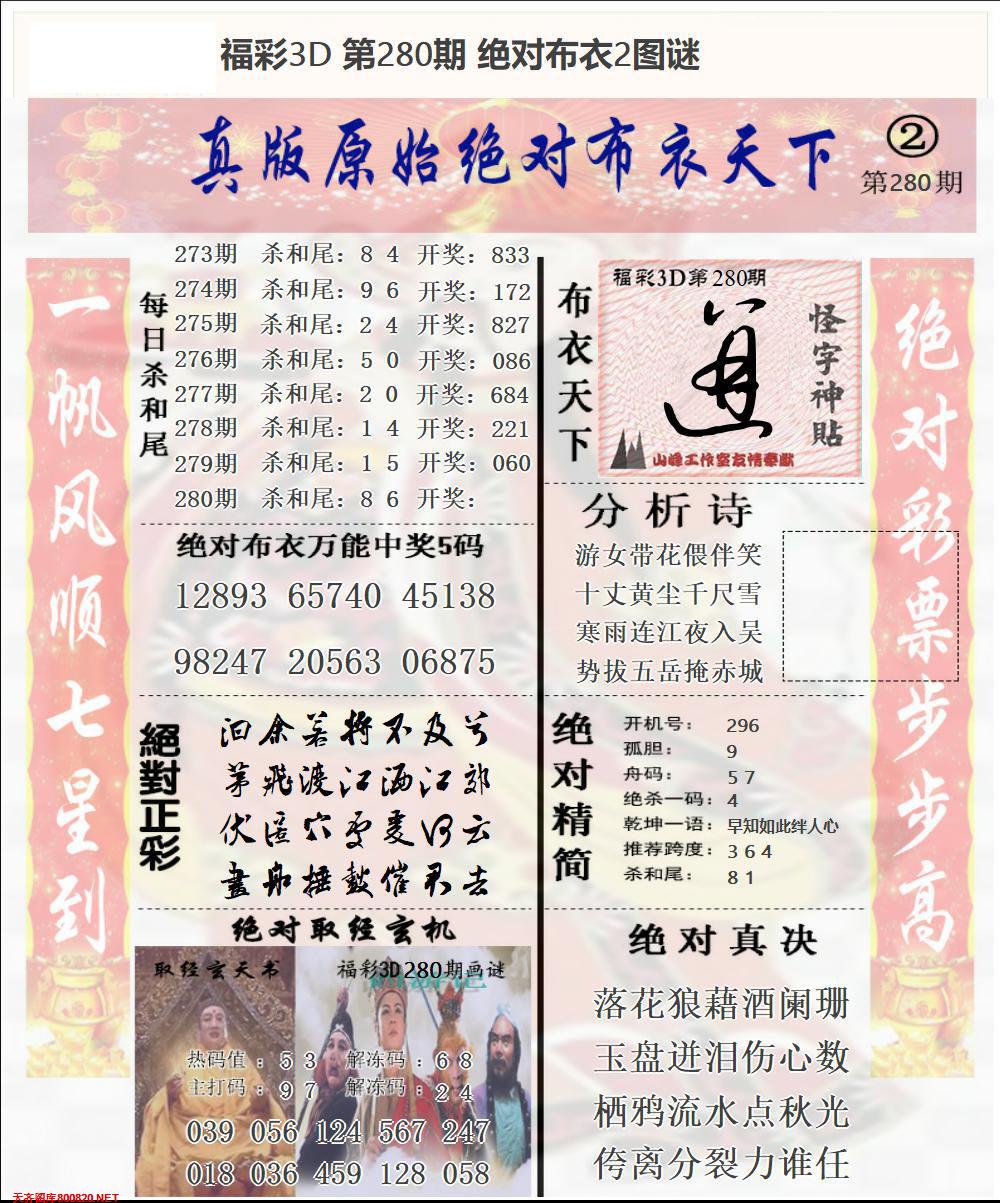 福彩3D 第280期 绝对布衣2图谜
真版原始绝对布衣天下
②
第280期
一帆风顺七星到
每日杀和尾
273期 杀和尾：8 4 开奖：833
274期 杀和尾：9 6 开奖：172
275期 杀和尾：2 4 开奖：827
276期 杀和尾：5 0 开奖：086
277期 杀和尾：2 0 开奖：684
278期 杀和尾：1 4 开奖：221
279期 杀和尾：1 5 开奖：060
280期 杀和尾：8 6 开奖：
绝对布衣万能中奖5码
12893 65740 45138
98247 20563 06875
絕對正彩
茅飛渡江洒江郊
绝对取经玄机
取经玄天书
福彩3D280期画谜
热码值：5 3 解冻码：6 8
主打码：9 7 解冻码：2 4
039 056 124 567 247
018 036 459 128 058
布衣天下
福彩3D第280期
怪字神貼
山峰工作室友情奉献
分析诗
游女带花偎伴笑
十丈黄尘千尺雪
寒雨连江夜入吴
势拔五岳掩赤城
绝对精简
开机号： 296
孤胆： 9
舟码： 5 7
绝杀一码：4
乾坤一语：早知如此绊人心
推荐跨度：3 6 4
杀和尾： 8 1
绝对真决
落花狼藉酒阑珊
玉盘迸泪伤心数
栖鸦流水点秋光
侉离分裂力谁任
绝对彩票步步高
天齐图库800820.NET